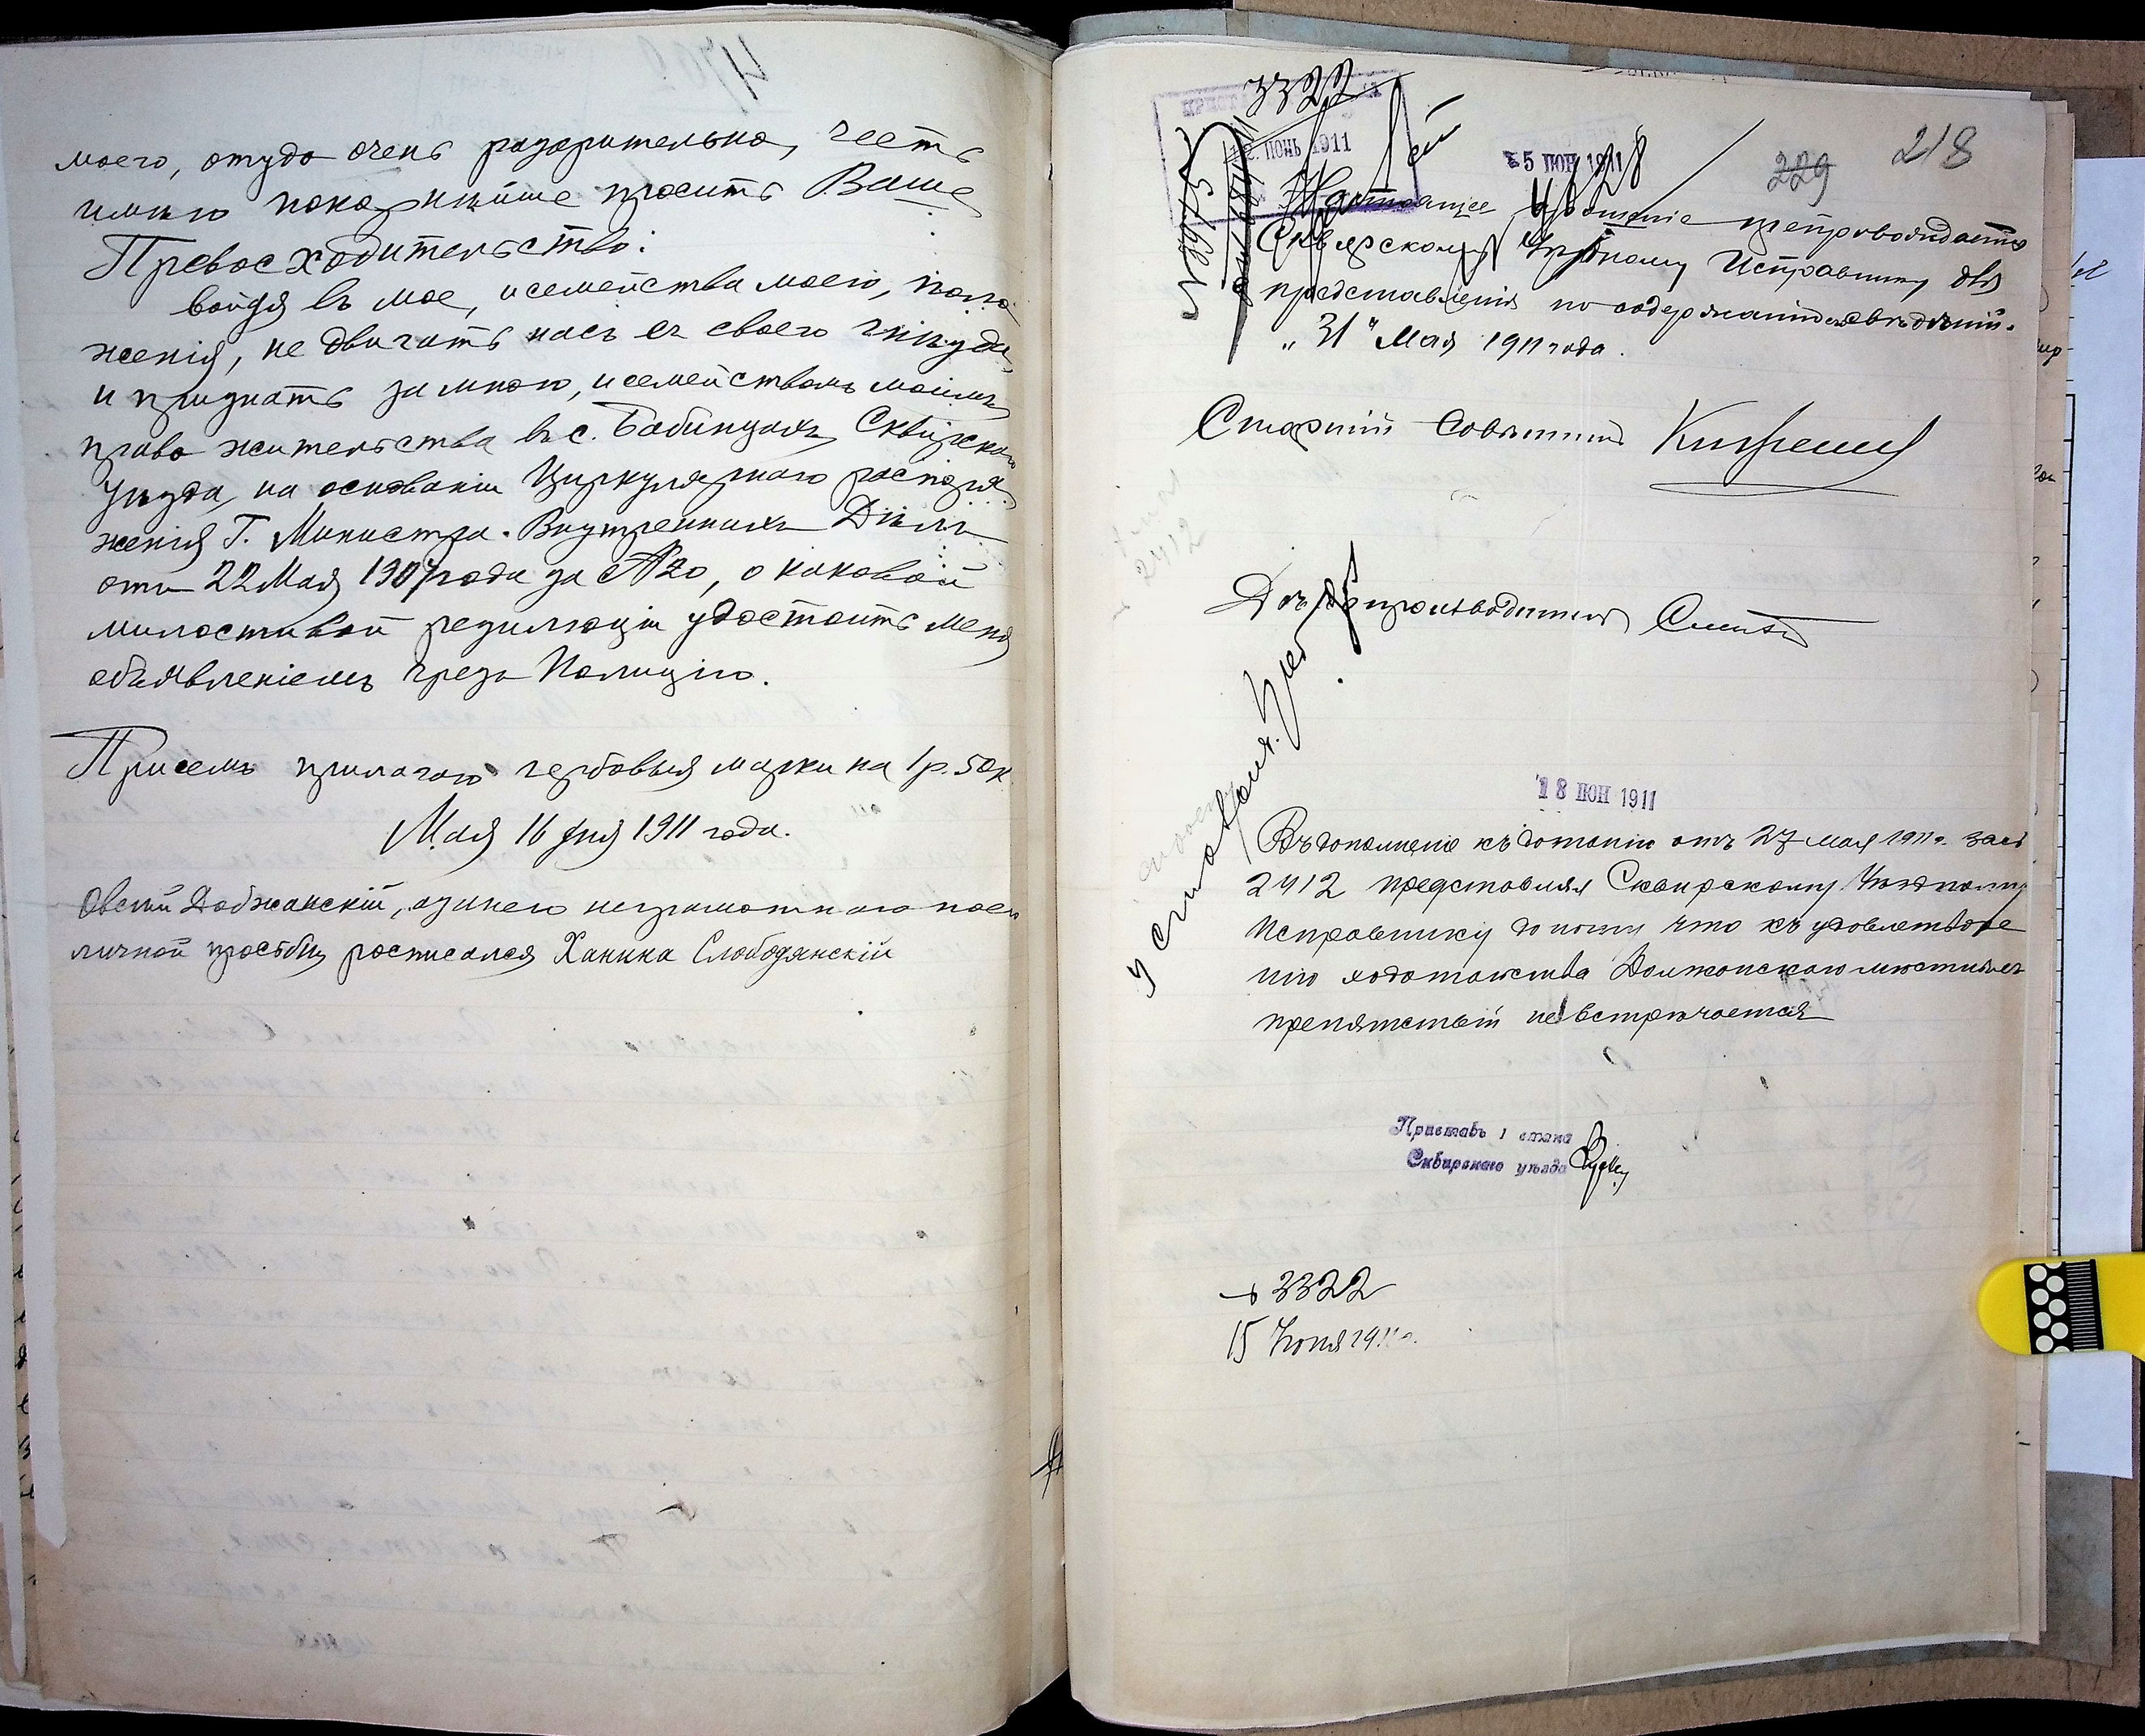 моего, отуда очень разорительно, честь
имѣю покорнѣйше просить Ваше
Превосходительство:
войдя въ мое, и семейства моего, поло
женія, не двигать насъ съ своего гнѣзда
и признать за мною, и семействомъ моимъ
право жительства въ с. Бабинцахъ, Сквирскаго
уѣзда, на основаніи Циркулярнаго распоря
женія Г. Министра Внутреннихъ Дѣлъ
отъ 22 Мая 1907 года за № 20, о каковой
милостивой резолюціи удостоить меня
объявленіемъ чрезъ Полицію.
Присемъ прилагаю гербовыя марки на 1 р. 50 к.
Мая 16 дня 1911 года.
Овсій Должанскій, а за него неграмотнаго по его
личной просьбѣ росписался Ханина Слободянскій
3322
218
229
ІЮНЬ 1911
5 ІЮН 1911
Настоящее прошеніе препровождается
Сквирскому Уѣздному Исправнику для
представленія по содержанію свѣдѣній.
„31" Мая 1911 года.
Старшій Совѣтникъ
Дѣлопроизводитель
18 ІЮН 1911
Въ дополненіе къ донесенію отъ 27 мая 1911 г. за №
2412 представляя Сквирскому Уѣздному
Исправнику доношу что къ удовлетворе
нію ходатайства Должанскаго
препятствій не встрѣчается
Приставъ 1 стана
Сквирскаго уѣзда
№ 3322
15 Іюня 1911 г.